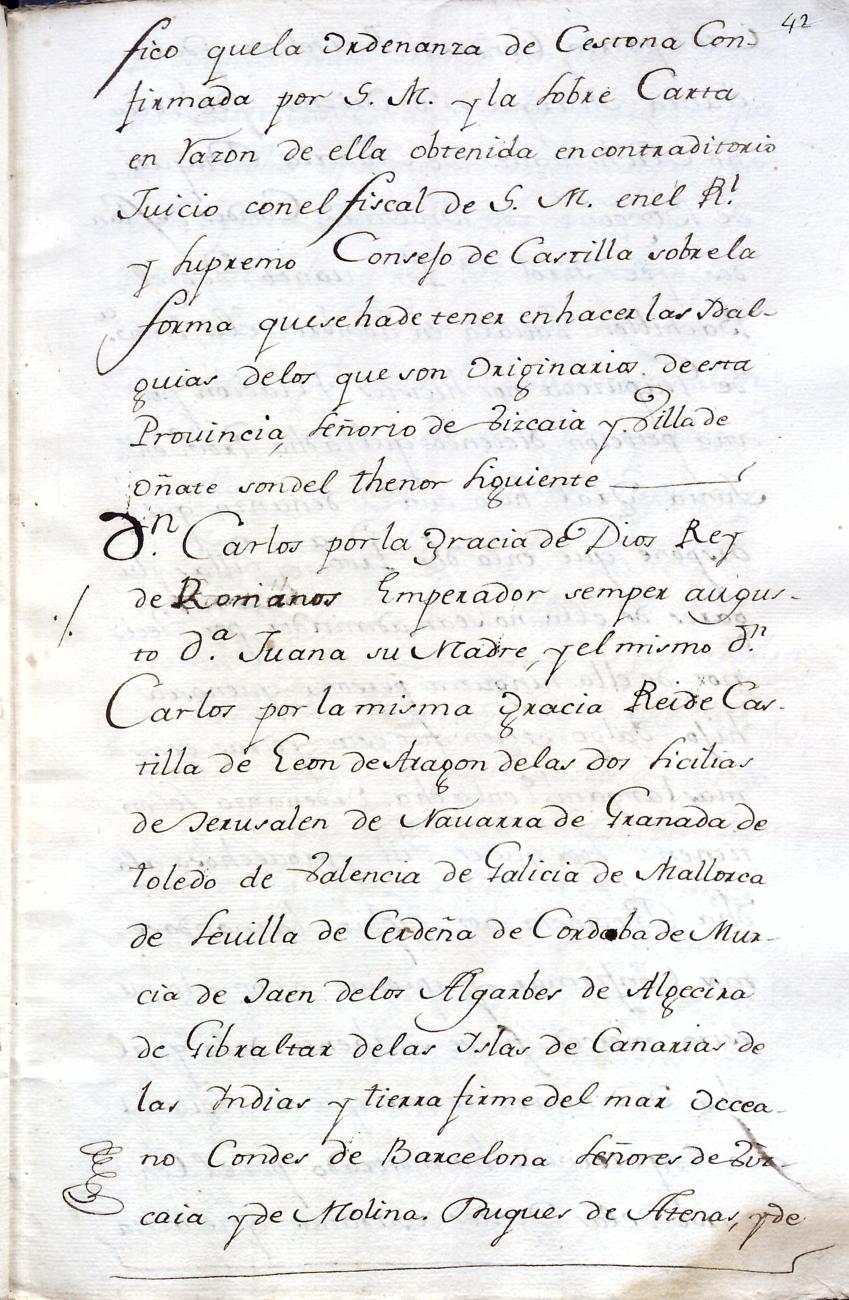 42
fico que la Ordenanza de Cestona Con-
firmada por S. M. y la sobre Carta
en razon de ella obtenida en contraditorio
Juicio con el fiscal de S. M. en el Rl
y supremo Consejo de Castilla sobre la
forma que se ha de tener en hacer las Idal-
guias de los que son Originarios de esta
Provincia, señorio de Vizcaia y Villa de
Oñate son del thenor siguiente
Dn. Carlos por la gracia de Dios Rey
de Romanos Emperador semper augus-
to D.a Juana su Madre, y el mismo D.n
Carlos por la misma gracia Rei de Cas-
tilla de Leon de Aragon de las dos sicilias
de Jerusalen de Navarra de Granada de
toledo de Valencia de Galicia de Mallorca
de sevilla de Cerdeña de Cordoba de Mur-
cia de Jaen de los Algarbes de Algecira
de Gibraltar de las Islas de Canarias de
las Indias y tierra firme del mar Occea-
no Condes de Barcelona señores de Viz-
caia y de Molina. Duques de Atenas, y de